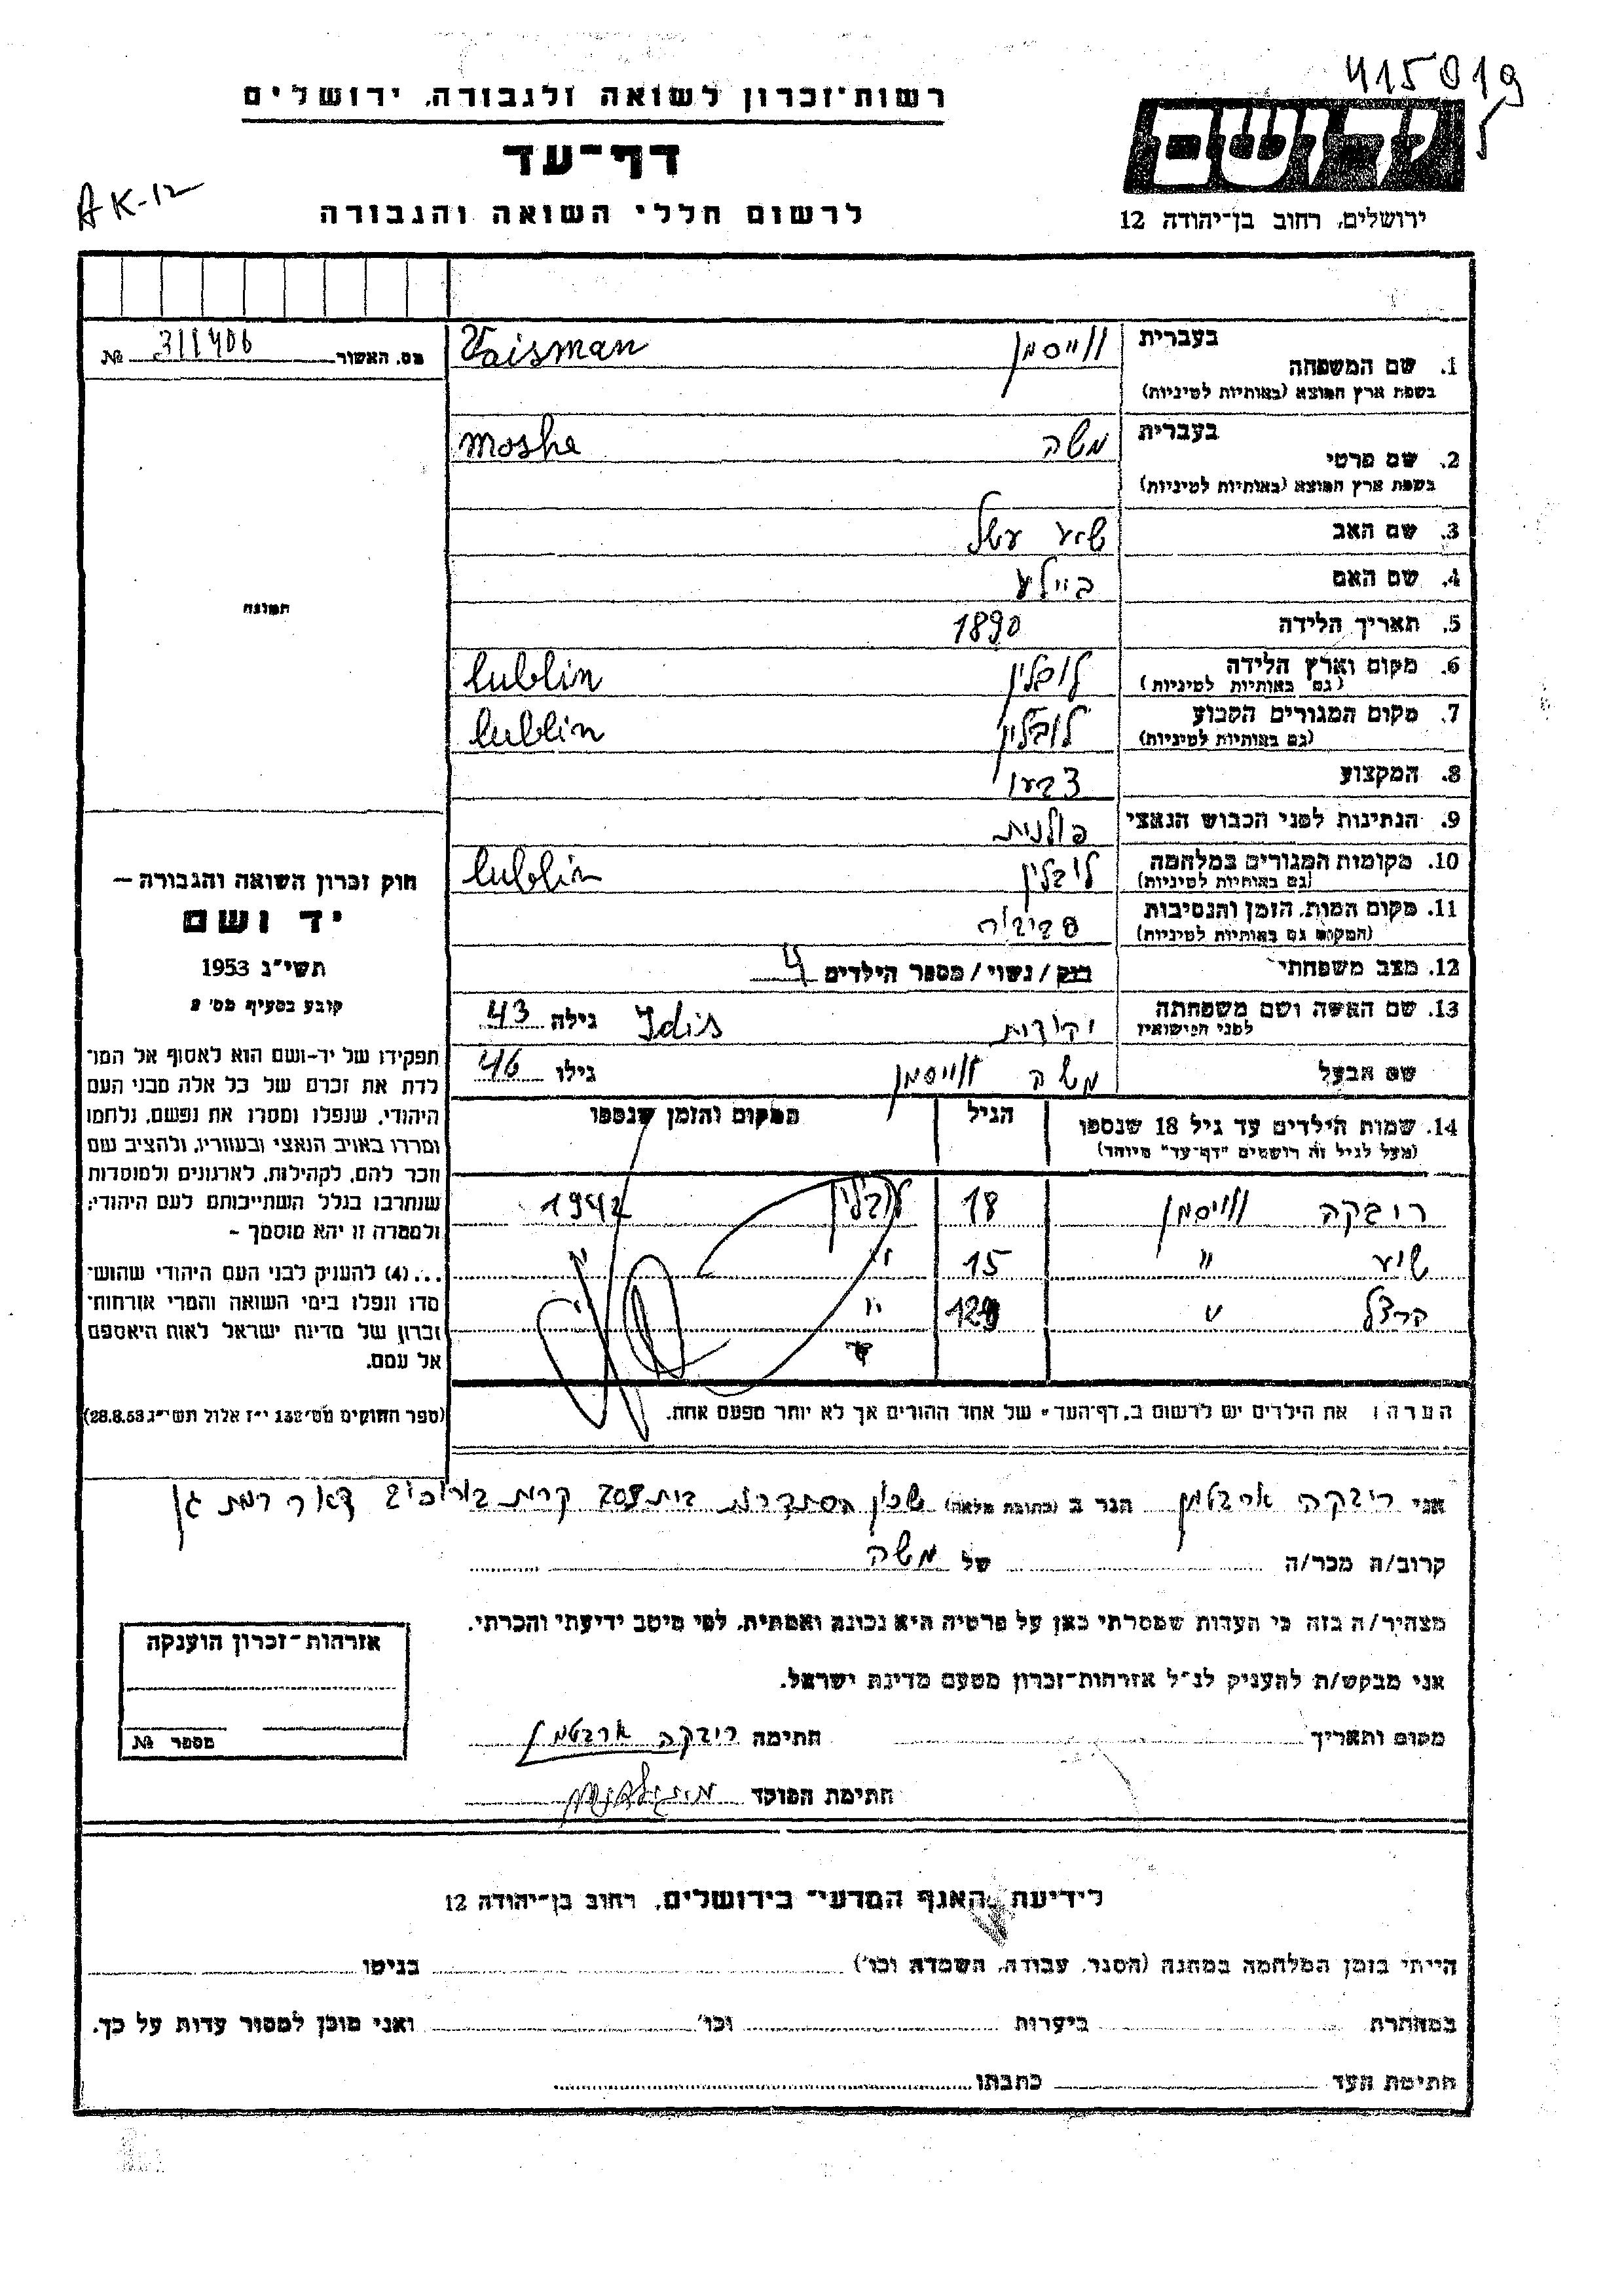 415019
רשות־זכרון לשואה ולגבורה, ירושלים
ידושם
דף־עד
AK-12
לרשום חללי השואה והגבורה
ירושלים, רחוב בן־יהודה 12
בעברית
1. שם המשפחה
בשפת ארץ המוצא (באותיות לטיניות)
ווייסמן
Vaisman
מס. האשור 311406 №
בעברית
2. שם פרטי
בשפת ארץ המוצא (באותיות לטיניות)
משה
Moshe
3. שם האב
שיע
4. שם האם
ביילע
תמונה
5. תאריך הלידה 1890
6. מקום וארץ הלידה
(גם באותיות לטיניות)
לובלין lublin
7. מקום המגורים הקבוע
(גם באותיות לטיניות)
לובלין lublin
8. המקצוע
צבעי
9. הנתינות לפני הכבוש הנאצי
פולנית
10. מקומות המגורים במלחמה
(גם באותיות לטיניות)
לובלין lublin
11. מקום המות, הזמן והנסיבות
(המקום גם באותיות לטיניות)
סביבור
12. מצב משפחתי
רנק / נשוי / מספר הילדים 4
13. שם האשה ושם משפחתה
לפני הנישואין
יהודית Idis גילה 43
שם הבעל
משה ווייסמן גילו 46
14. שמות הילדים עד גיל 18 שנספו
(מעל לגיל זה רושמים "דף־עד" מיוחד)
הגיל
המקום והזמן שנספו
רובקה ווייסמן 18 לובלין 1942
שיע " 15 " "
הרצל " " "
הערה: את הילדים יש לרשום ב„דף־העד" של אחד ההורים אך לא יותר מפעם אחת.
חוק זכרון השואה והגבורה —
יד ושם
תשי״ג 1953
קובע בסעיף מס׳ 2
תפקידו של יד-ושם הוא לאסוף אל המו־
לדת את זכרם של כל אלה מבני העם
היהודי, שנפלו ומסרו את נפשם, נלחמו
ומרדו באויב הנאצי ובעוזריו, ולהציב שם
וזכר להם, לקהילות, לארגונים ולמוסדות
שנחרבו בגלל השתייכותם לעם היהודי;
ולמטרה זו יהא מוסמך –
...(4) להעניק לבני העם היהודי שהוש־
מדו ונפלו בימי השואה והמרי אזרחות־
זכרון של מדינת ישראל לאות היאספם
אל עמם.
(ספר החוקים מס׳ 132 י״ז אלול תשי״ג 28.8.53)
אני רובקה ארבטמן הגר ב (כתובת מלאה) שכון הסתדרות בית קרית בורוכוב דאר רמת גן
קרוב/ה מכר/ה של משה
מצהיר/ה בזה כי העדות שמסרתי כאן על פרטיה היא נכונה ואמתית, לפי מיטב ידיעתי והכרתי.
אני מבקש/ת להעניק לנ״ל אזרחות־זכרון מטעם מדינת ישראל.
מקום ותאריך חתימה רובקה ארבטמן
חתימת הפוקד
אזרחות־זכרון הוענקה
מספר №
לידיעת האגף המדעי בירושלים, רחוב בן־יהודה 12
הייתי בזמן המלחמה במחנה (הסגר, עבודה, השמדה וכו׳) בגיטו
במחתרת ביערות וכו׳ ואני מוכן למסור עדות על כך.
חתימת העד כתבתו